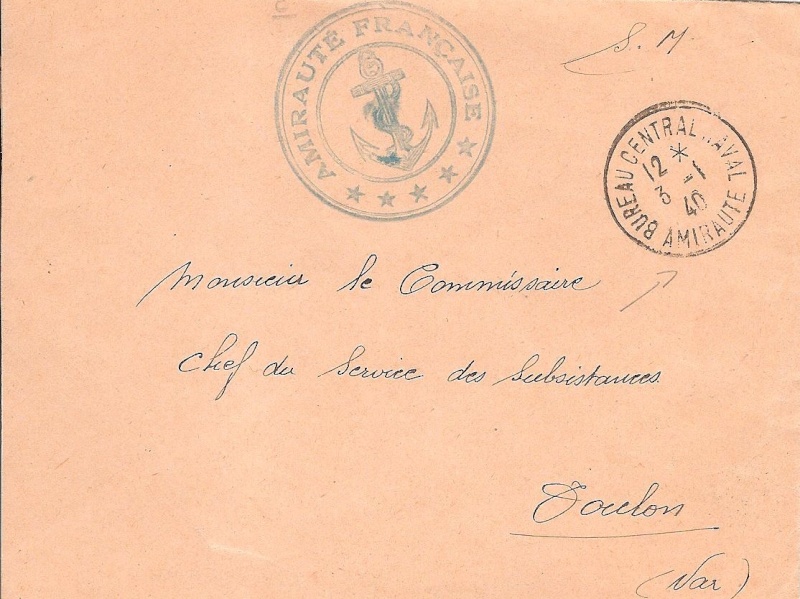 S. M
AMIRAUTÉ FRANÇAISE
BUREAU CENTRAL NAVAL
12 *
3 -1
40
AMIRAUTE
Monsieur le Commissaire
Chef du Service des Subsistances
Toulon
(Var)